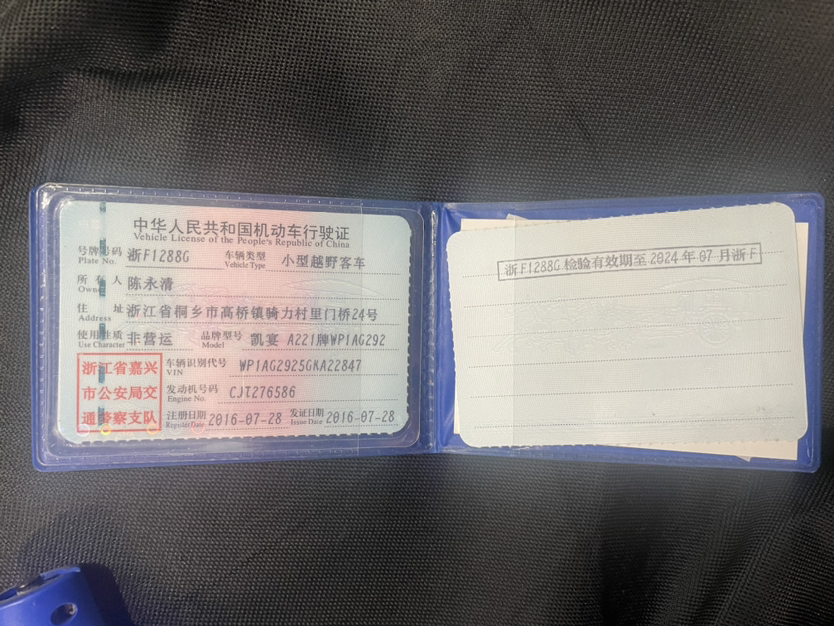 中华人民共和国机动车行驶证
Vehicle License of the People's Republic of China
号牌号码 浙F1288G 车辆类型 小型越野客车
Plate No. Vehicle Type
所有人 陈永清
Owner
住址 浙江省桐乡市高桥镇骑力村里门桥24号
Address
使用性质 非营运 品牌型号 凯宴 A221牌WP1AG292
Use Character Model
浙江省嘉兴
市公安局交
通警察支队
车辆识别代号 WP1AG2925GKA22847
VIN
发动机号码 CJT276586
Engine No.
注册日期 2016-07-28 发证日期 2016-07-28
Register Date Issue Date
浙F1288G检验有效期至2024年07月浙F